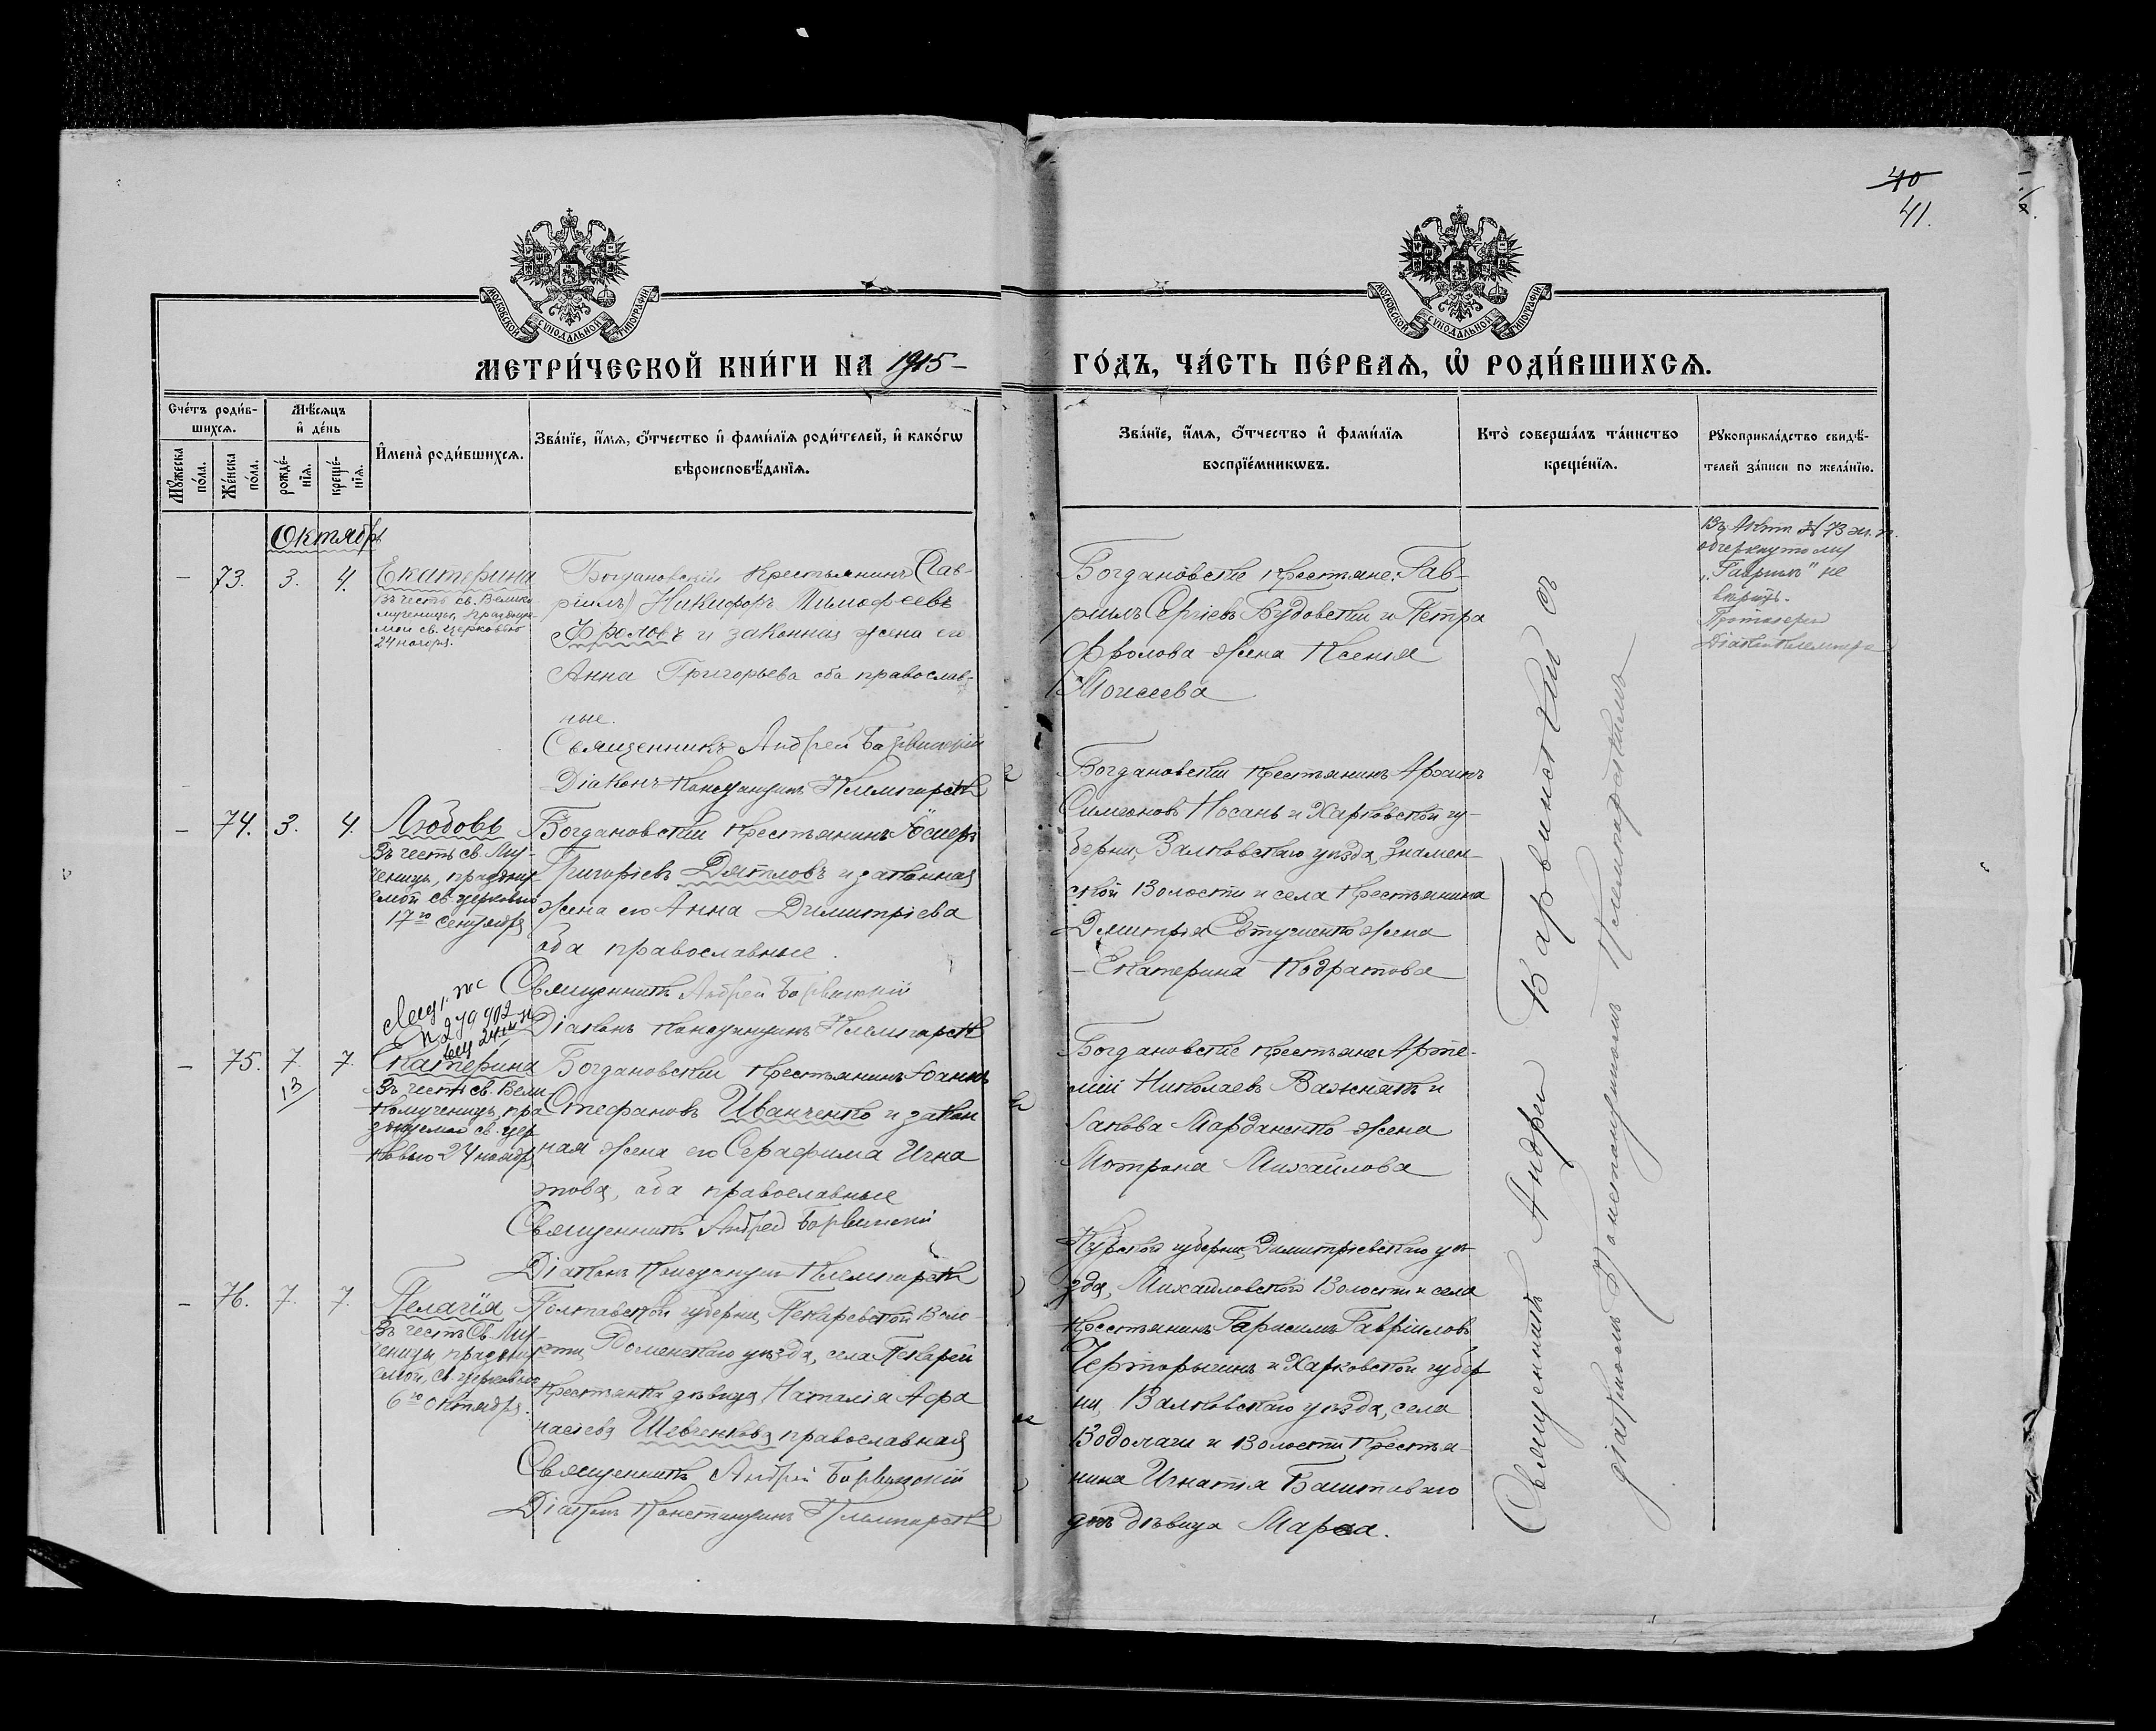 40
41.
МОСКОВСКОЙ СУНОДАЛЬНОЙ ТИПОГРАФІИ
МОСКОВСКОЙ СУНОДАЛЬНОЙ ТИПОГРАФІИ
МЕТРИ́ЧЕСКОЙ КНИ́ГИ НА 1915 –
ГО́ДЪ, ЧА́СТЬ ПЕ́РВАѦ, Ѽ РОДИ́ВШИХСѦ.
Сче́тъ роди́в-
шихсѧ.
Мѣ́сѧцъ
и҆ де́нь
Мꙋ́жеска
по́ла.
Же́нска
по́ла.
рожде́-
нїѧ.
креще́-
нїѧ.
И҆мена̀ роди́вшихсѧ.
Зва́нїе, и҆́мѧ, ѻ҆́тчество и҆ фами́лїѧ роди́телей, и҆ како́гѡ
вѣроисповѣ́данїѧ.
Зва́нїе, и҆́мѧ, ѻ҆́тчество и҆ фами́лїѧ
воспрїе́мникѡвъ.
Кто̀ соверша́лъ та́инство
креще́нїѧ.
Рꙋкоприкла́дство свидѣ́-
телей за́писи по жела́нїю.
Октябрь
– 73. 3. 4. Екатерина
Въ честь св. Велико
мученицы, празднуе-
мой св. церковью
24 ноября.
Богдановскій крестьянинъ (Гав-
ріилъ) Никифоръ Тимофеевъ
Фроловъ и законная жена его
Анна Григорьева оба православ-
ные.
Священникъ Андрей Барвинскій
Діаконъ Константинъ
Богдановскіе крестьяне: Гав-
риилъ Сергіевъ Будовскій и Петра
Фролова жена Ксенія
Моисеева
Въ 73 ж. п.
„Гавріилъ" не
вѣрить.
Діаконъ
– 74. 3. 4. Любовь
Въ честь св. Му-
ченицы, празднуе-
мой св. церковью
17го Сентября
Богдановскій крестьянинъ
Григоріевъ Дятловъ и законная
жена его Анна Димитріева
оба православные.
Священникъ Андрей Барвинскій
Діаконъ Константинъ
Богдановскій крестьянинъ Архипъ
Симеоновъ Носань и Харьковской гу-
берніи, Валковскаго уѣзда, Знамен-
ской Волости и села крестьянина
Димитрія жена
Екатерина Кодратова
– 75. 7. 7. Екатерина
13
Въ честь св. Вели
комученицы, пра
зднуемой св. цер
ковью 24 ноября
Богдановскій крестьянинъ Іоаннъ
Стефановъ Иванченко и закон
ная жена его Серафима Игна
това, оба православные
Священникъ Андрей Барвинскій
Діаконъ Константинъ
Богдановскіе крестьяне Арте-
мій Николаевъ Важнякъ и
Іакова Марданенко жена
Матрона Михайлова
– 76. 7. 7. Пелагія
Въ честь Св. Му-
ченицы, празднуе
мой, св. церковью
6го Октября.
Полтавской губерніи, Пекаревской Воло-
сти, Роменскаго уѣзда, села Пекарей
крестьянка дѣвица, Наталія Афа
насіева Шевченкова православная
Священникъ Андрей Барвинскій
Діаконъ Константинъ
Курской губерніи, Димитріевскаго уѣ-
зда, Михайловской Волости и села
крестьянинъ Гарасимъ Гавріиловъ
Черторыгинъ и Харьковской губер
ніи, Валковскаго уѣзда, села
Водолаги и Волости крестья-
нина Игнатія
дочь дѣвица Марѳа.
Священникъ Андрей Барвинскій съ
діакономъ Константиномъ